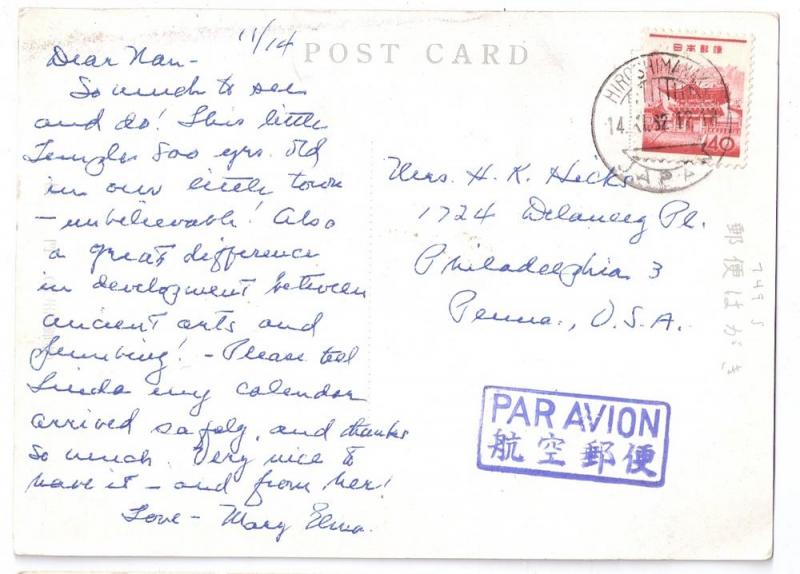 11/14
POST CARD
Dear Nan -
So much to see
and do! This little
Temple 800 yrs. old
in our little town
- unbelievable! Also
a great difference
in development between
ancient arts and
plumbing! - Please tell
Linda my calendar
arrived safely, and thanks
so much. Very nice to
have it - and from her!
Love - Mary Elma.
日本郵便
40
HIROSHIMA
14.XI.62
JAPAN
Mrs. H. K. Hicks
1724 Delancey Pl.
Philadelphia 3
Penna., U.S.A.
郵便はがき
749 5
PAR AVION
航空郵便